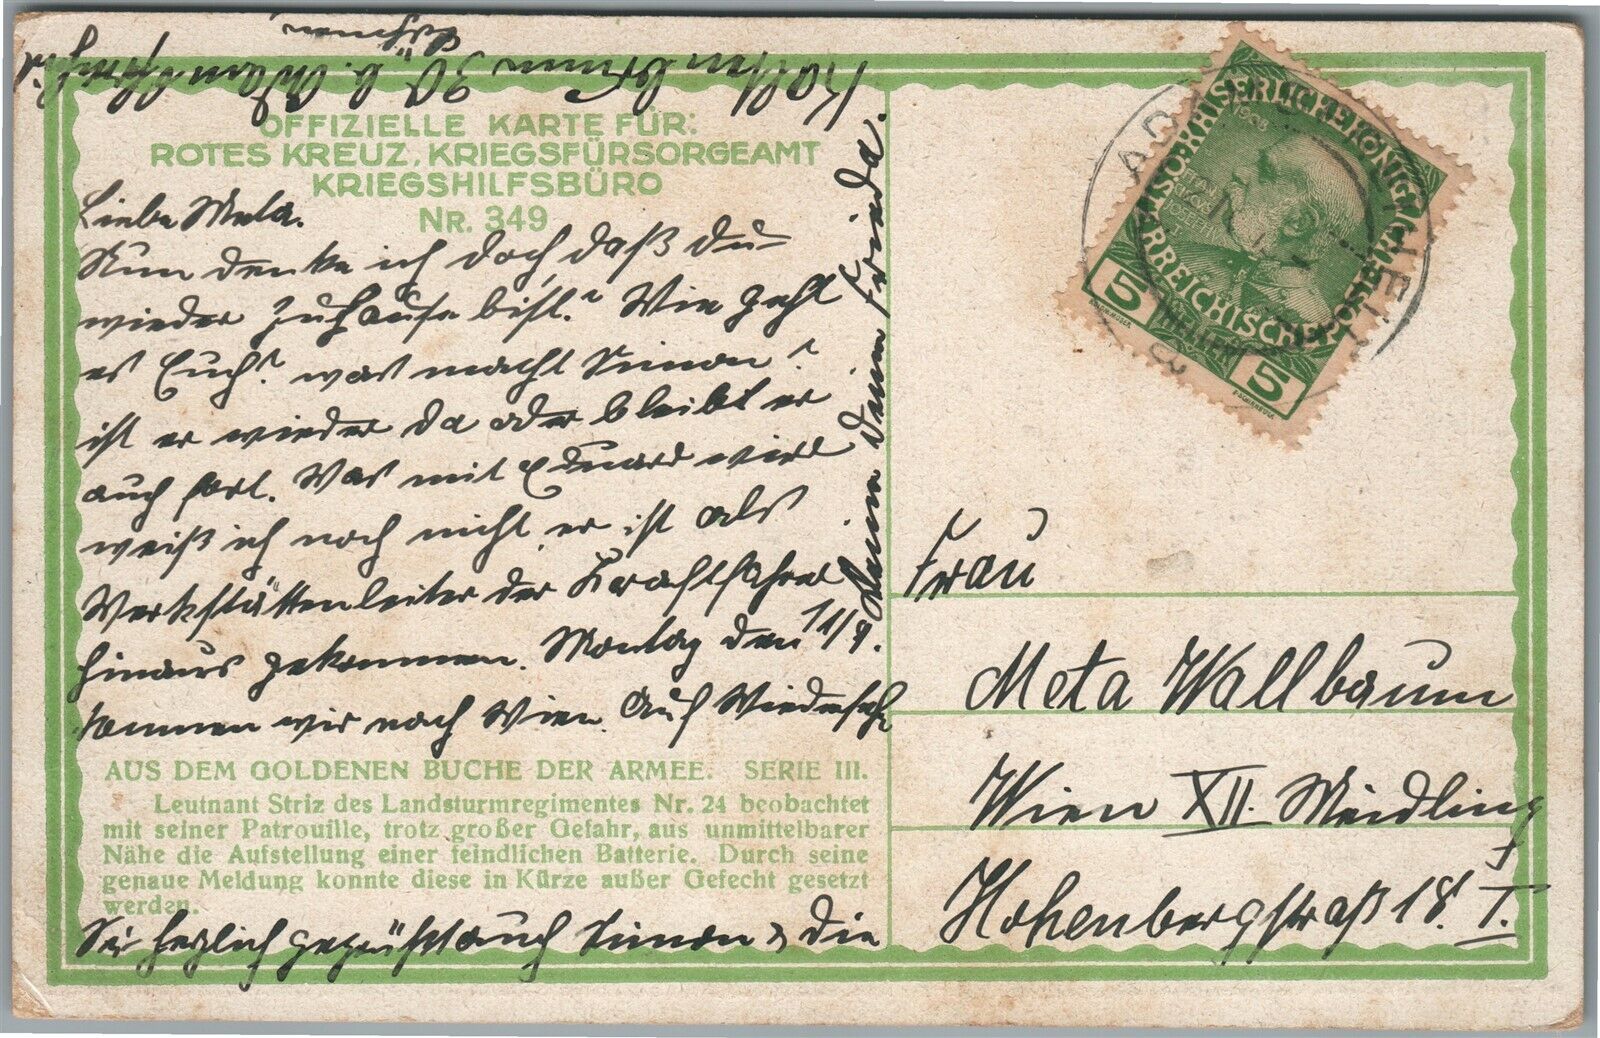 OFFIZIELLE KARTE FÜR:
ROTES KREUZ, KRIEGSFÜRSORGEAMT
KRIEGSHILFSBÜRO
NR. 349
Liebe Meta.
Nun denke ich doch, daß du
wieder zuhause bist. Wie geht
es Euch? was macht Simon?
ist er wieder da oder bleibt er
auch fort. Was mit Eduard wird
weiß ich noch nicht, er ist als
Werkstättenleiter der Kraftfahrer
hinaus gekommen. Montag den 11/9.
kommen wir nach Wien. Auf Wiedersehn
AUS DEM GOLDENEN BUCHE DER ARMEE. SERIE III.
Leutnant Striz des Landsturmregimentes Nr. 24 beobachtet
mit seiner Patrouille, trotz großer Gefahr, aus unmittelbarer
Nähe die Aufstellung einer feindlichen Batterie. Durch seine
genaue Meldung konnte diese in Kürze außer Gefecht gesetzt
werden.
Sei herzlich gegrüßt auch Simon & die
deine Frieda.
Kaltenbrunn 30 b.
KAISERLICHE KÖNIGLICHE
ÖSTERREICHISCHE POST
1908
5 5
Frau
Meta Wallbaum
Wien XII. Meidling
Hohenbergstraß 18. I.